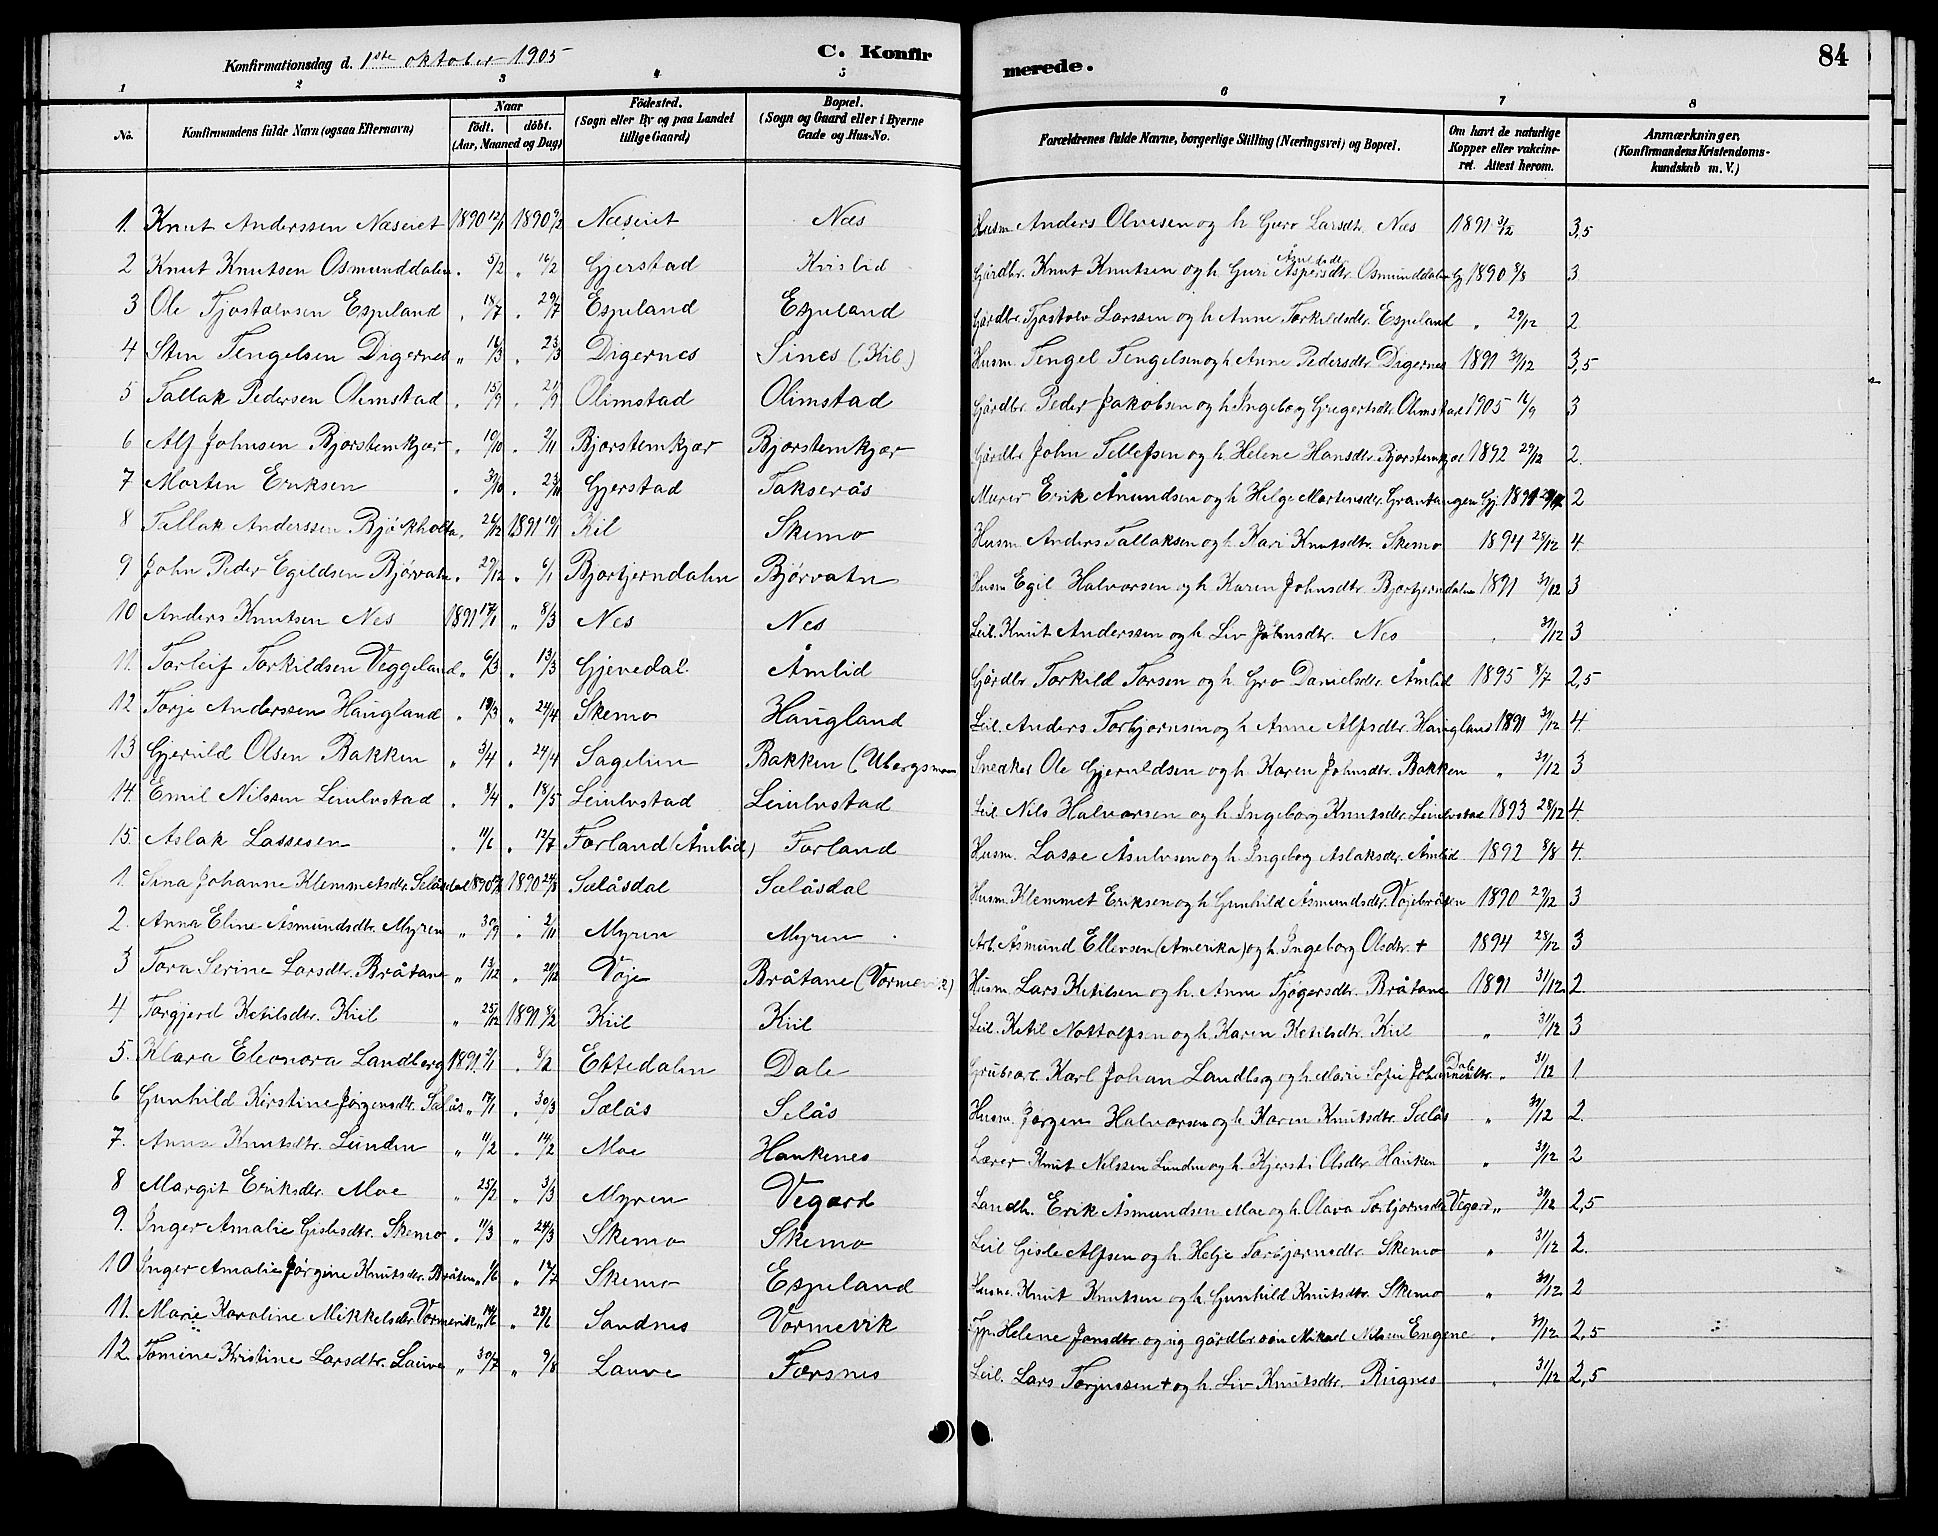 Konfirmationsdag d. 1ste oktober 1905
C. Konfirmerede.
84
1 2 3 4 5 6 7 8
No. Konfirmandens fulde Navn (ogsaa Efternavn) Naar födt. döbt. (Aar, Maaned og Dag) Födested. (Sogn eller By og paa Landet tillige Gaard) Bopæl. (Sogn og Gaard eller i Byerne Gade og Hus-No. Forældrenes fulde Navne, borgerlige Stilling (Næringsvei) og Bopæl. Om havt de naturlige Kopper eller vakcineret. Attest herom. Anmærkninger. (Konfirmandens Kristendomskundskab m. V.)
1. Knut Anderssen Næseiet 1890 12/1 1890 9/2 Næseiet Næs Husm. Anders Olvesen og h. Guro Larsdtr. Næs 1891 3/2 3,5
2 Knut Knutsen Osmunddalen " 5/2 " 16/2 Gjerstad Kvislid Gårdbr. Knut Knutsen og h. Guri Aspersdtr. Osmunddalen Gj 1890 8/8 3
3 Ole Tjostolvsen Espeland " 18/7 " 29/7 Espeland Espeland Gårdbr. Tjostolv Larssen og h. Anne Torkildsdtr. Espeland " 29/12 2
4 Sten Tengelsen Digernes " 16/3 " 23/3 Digernes Sines (Kil) Husm. Tengel Tengelsen og h. Anne Pedersdtr. Digernes 1891 31/12 3,5
5 Tallak Pedersen Olimstad " 15/9 " 21/9 Olimstad Olimstad Gårdbr. Peder Jakobsen og h. Ingeborg Gregertsdtr. Olimstad 1905 16/9 3
6 Alf Johnsen Bjorstemkjær " 10/10 " 2/11 Bjorstemkjær Bjorstemkjær Gårdbr. John Tellefsen og h. Helene Hansdtr. Bjorstemkjær 1892 29/12 2.
7 Morten Eriksen " 30/10 " 23/11 Gjerstad Takserås Murer Erik Ånundsen og h. Helge Mortensdtr. Grantangen Gj. 1891 2
8 Tallak Anderssen Bjørkholta " 26/12 1891 19/1 Kil Skemo Husm. Anders Tallaksen og h. Kari Knutsdtr. Skemo 1894 28/12 4.
9 John Peder Egeldsen Bjørvatn " 29/12 " 6/1 Bjortjerndalen Bjørvatn Husm. Egil Halvorsen og h. Karen Johnsdtr. Bjortjerndalen 1891 31/12 3
10 Anders Knutsen Nes 1891 17/1 " 8/3 Nes Nes Leil. Knut Anderssen og h. Liv Johnsdtr. Nes " 31/12 3
11. Torleif Torkildsen Veggeland " 6/3 " 13/3 Gjevedal Åmlid Gårdbr. Torkild Torsen og h. Gro Danielsdtr. Åmlid 1895 8/7 2,5
12 Torje Anderssen Haugland " 19/3 " 24/4 Skemo Haugland Leil. Anders Torbjornsen og h. Anne Alfsdtr. Haugland 1891 31/12 4.
13 Gjeruld Olsen Bakken " 3/4 " 24/4 Sagelien Bakken (Ubergsmoen Snedker Ole Gjeruldsen og h. Karen Johnsdtr. Bakken " 31/12 3
14. Emil Nilssen Leiulvstad " 8/4 " 18/5 Leiulvstad Leiulvstad Leil. Nils Halvorsen og h. Ingeborg Knutsdtr. Leiulvstad 1893 28/12 4.
15. Aslak Lassesen " 11/6 " 12/7 Forland (Åmlid) Forland Husm. Lasse Åsulvsen og h. Ingeborg Aslaksdtr. Åmlid 1892 8/8 4.
1. Sina Johanne Klemmetsdtr. Selåsdal 1890 1890 24/8 Sælåsdal Sælåsdal Husm. Klemmet Eriksen og h. Gunhild Åsmundsdtr. Vøjebråten 1890 29/12 3
2. Anna Eline Åsmundsdtr. Myren " 30/9 " 2/11 Myren Myren Arb. Åsmund Ellevsen (Amerika) og h. Ingeborg Olsdtr. + 1894 28/12 3
3 Tora Serine Larsdtr. Bråtane " 13/12 " 21/12 Vøje Bråtane (Vormevik) Husm. Lars Ketilsen og h. Anne Tjøgersdtr. Bråtane 1891 31/12 2.
4 Torgjerd Ketilsdtr. Kiil " 25/12 1891 8/2 Kiil Kiil Leil. Ketil Nottolfsen og h. Karen Ketilsdtr. Kiil " 31/12 3
5. Klara Eleonora Landberg 1891. 2/1 " 8/2 Ettedalen Dale Grubearb. Karl Johan Landberg og h. Marie Sofie Johannesdtr. Dale " 31/12 1.
6 Gunhild Kirstine Jørgensdtr. Sælås " 17/1 " 30/3 Sælås Selås Husm. Jørgen Halvorsen og h. Karen Knutsdtr. Sælås " 31/12 2.
7. Anna Knutsdtr. Lunden " 11/2 " 14/2 Moe Haukenes Lærer Knut Nilssen Lunden og h. Kjersti Olsdtr. Hauken " 31/12 2
8 Margit Eriksdtr. Moe " 25/2 " 3/3 Myren Vegard Landh. Erik Åsmundsen Moe og h. Olava Torbjornsdtr. Vegard " 31/12 2,5
9. Inger Amalie Gislesdtr. Skemo " 11/3 " 24/3 Skemo Skemo Leil Gisle Alfsen og h. Helje Torbjørnsdtr. Skemo " 31/12 2.
10 Inger Amalie Jørgine Knutsdtr. Bråten " 1/6 " 14/7 Skemo Espeland Husm. Knut Knutsen og h. Gunhild Knutsdtr. Skemo " 31/12 2
11. Marie Karoline Mikkelsdtr. Vormevik " 14/6 " 28/6 Sandnes Vormevik Tp. Helene Jonsdtr og ug gårdbr.søn Mikael Nilssen Engene " 31/12 2,5
12. Tomine Kristine Larsdtr. Lauve " 30/7 " 9/8 Lauve Færsnes Leil. Lars Torjussen + og h. Liv Knutsdtr. Rugnes " 31/12 2,5